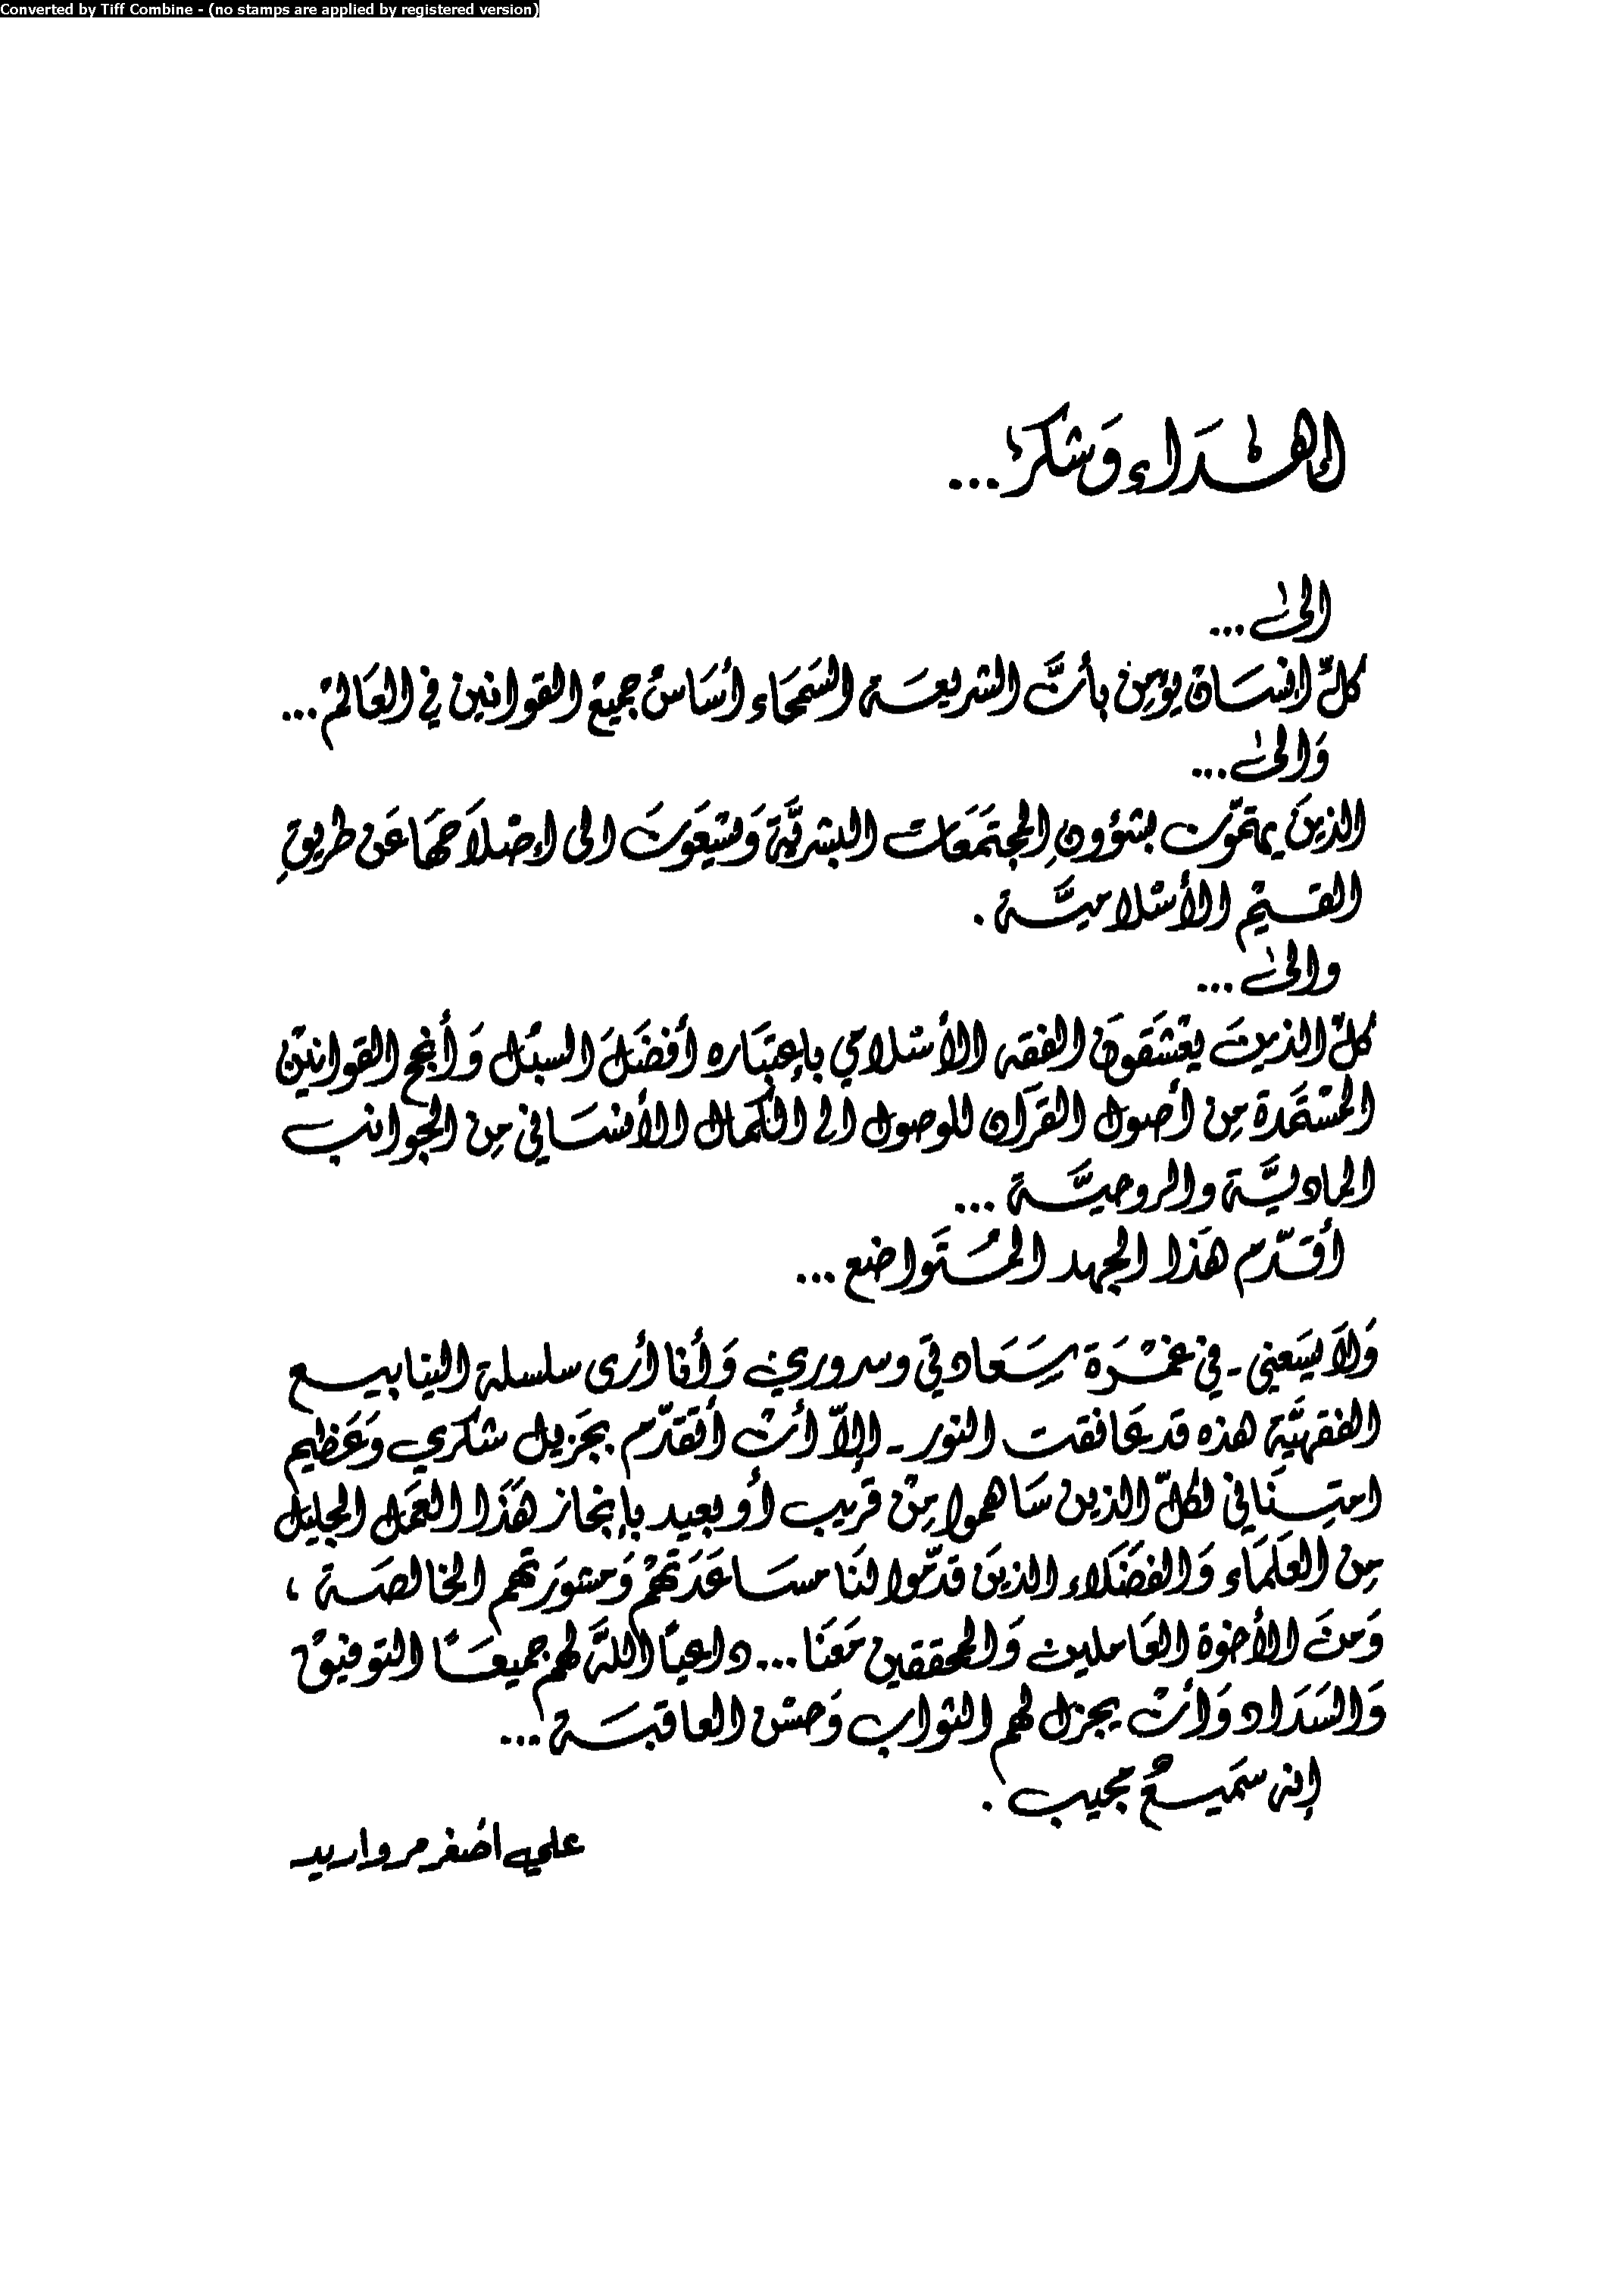 Converted by Tiff Combine - (no stamps are applied by registered version)
إهداء وشكر ...
الى ...
كلّ انسان يؤمن بأنَّ الشريعة السَمحَاء أسَاسُ جميع القوانين في العَالم ...
وَالى ...
الذينَ يهتمّون بشؤونِ المجتَمَعَات البشريَّة وَيسْعَونَ الى إصْلاَحهَا عَن طريقِ
القيم الأسْلاميَّة .
والى ...
كلّ الذينَ يعْشَقونَ الفقه الأسْلامي بإعتبَاره أفضَلَ السبُل وَأنجح القوانيْن
المسْتمَدة مِن أصول القرآن للوصول الى الكمال الأنسَاني مِن الجوانب
الماديَّة والروحيَّة ...
أقدّم هَذا الجهد المُتَواضع ...
وَلاَ يسَعني - في غمْرَة سَعَادتي وسروري وَأنا أرى سلسلة الينابيع
الفقهيَّة هذه قد عَانقت النور - إلاّ أنْ أتقدّم بجَزيل شكري وَعَظيم
امتنَاني لكلّ الذين سَاهموا مِنْ قريب أو بعيد بإنجاز هَذَا العمَل الجليل
مِن العلَمَاء وَالفضَلاء الذينَ قدّموا لنَا مسَاعَدَتهمْ وَمشورَتهم الخالصَة ،
وَمنَ الأخوة العَاملين وَالمحققين مَعَنا ... داعياً اللهَ لهم جميعَاً التوفيق
وَالسَدَاد وَأنْ يجزل لهم الثواب وَحسْن العاقبَة ...
إنه سَميعٌ مجيب .
علي أصْغر مرواريد